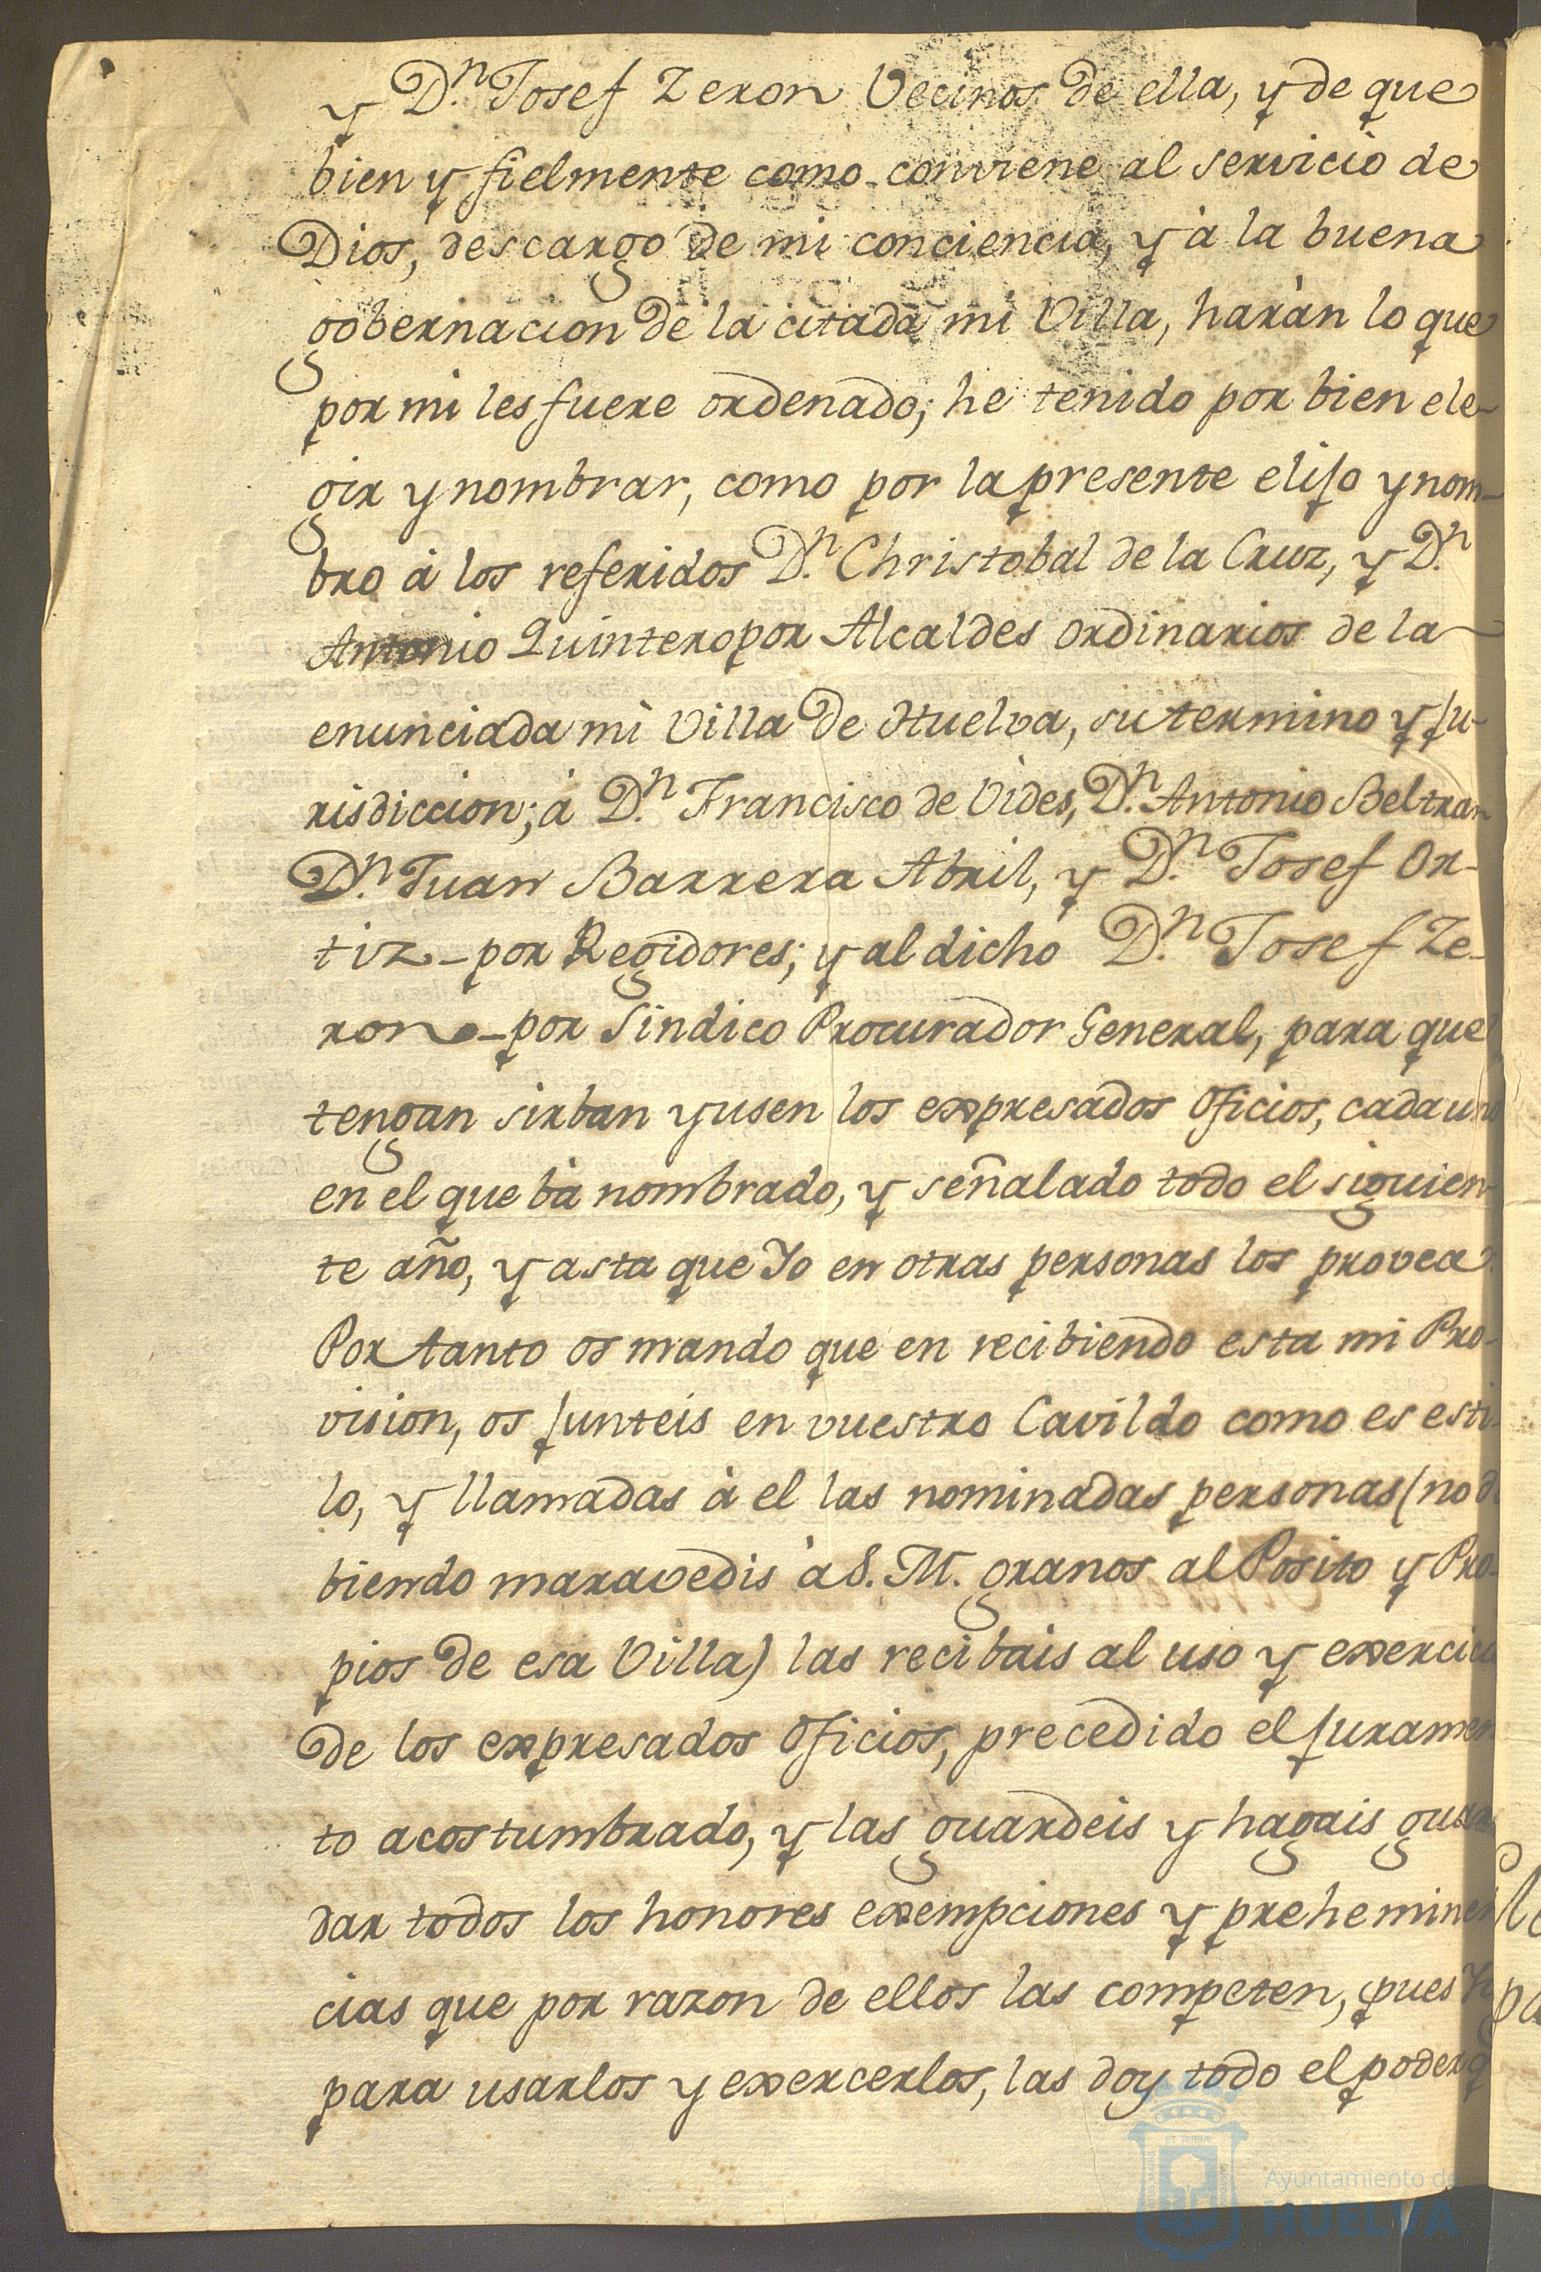 y D.n Josef Zeron Vecinos de ella, y de que
bien y fielmente como conviene al servicio de
Dios, descargo de mi conciencia, y à la buena
gobernacion de la citada mi Villa, haràn lo que
por mi les fuere ordenado; he tenido por bien ele-
gir y nombrar, como por la presente elijo y nom-
bro à los referidos D.n Christobal de la Cruz, y D.n
Antonio Quintero por Alcaldes ordinarios de la
enunciada mi Villa de Huelva, su termino y ju-
risdiccion; à D.n Francisco de Vides, D.n Antonio Beltran
D.n Juan Barrera Abril, y D.n Josef Or-
tiz - por Regidores; y al dicho D.n Josef Ze-
ron - por Sindico Procurador General, para que
tengan sirban y usen los expresados oficios, cada uno
en el que bà nombrado, y señalado todo el siguien-
te año, y asta que Yo en otras personas los provea
Por tanto os mando que en recibiendo esta mi Pro-
vision, os junteis en vuestro Cavildo como es esti-
lo, y llamadas à el las nominadas personas (no de
biendo maravedis à S. M. granos al Posito y Pro-
pios de esa Villa) las recibais al uso y exercicio
de los expresados oficios, precedido el juramen
to acostumbrado, y las guardeis y hagais guar
dar todos los honores exempciones y preheminen
cias que por razon de ellos las competen, pues
para usarlos y exercerlos, las doy todo el poder q
Ayuntamiento de
HUELVA